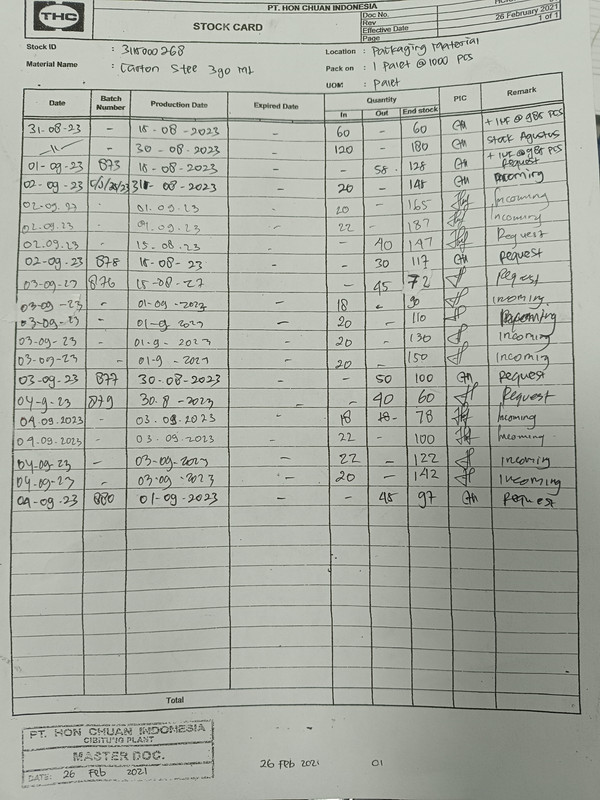 THC
PT. HON CHUAN INDONESIA
STOCK CARD
Doc No.
Rev
Effective Date 26 February 2021
Page 1 of 1
Stock ID : 3118000268
Location : Packaging Material
Material Name : Carton Stee 390 ML
Pack on : 1 Palet @ 1000 pcs
UOM : Palet
Date Batch Number Production Date Expired Date Quantity In Out End stock PIC Remark
31-08-23 - 15-08-2023 - 60 - 60 + 1 @ 985 PCS
-11- - 30-08-2023 - 120 - 180 Stock Agustus
+ @ 985 PCS
01-09-23 873 15-08-2023 - - 58 128 Request
02-09-23 31-08-2023 - 20 - 145 Incoming
02.09.23 01.09.23 - 20 - 165 Incoming
02.09.23 01.09.23 - 22 - 187 Incoming
02.09.23 15.08.23 - - 40 147 Request
02-09-23 878 15-08-23 - - 30 117 Request
03-09-23 876 15-08-23 - - 45 72 Request
03-09-23 - 01-09-2023 - 18 - 90 Incoming
03-09-23 - 01-9-2023 - 20 - 110 Incoming
03-09-23 - 01-9-2023 - 20 - 130 Incoming
03-09-23 - 01-9-2023 - 20 - 150 Incoming
03-09-23 877 30-08-2023 - - 50 100 Request
04-9-23 879 30.8-2023 - - 40 60 Request
04.09.2023 - 03.09.2023 - 18 18- 78 Incoming
04.09.2023 - 03.09.2023 - 22 - 100 Incoming
04-09-23 - 03-09-2023 - 22 - 122 Incoming
04-09-23 - 03-09-2023 - 20 - 142 Incoming
04-09-23 880 01-09-2023 - - 45 97 Request
Total
PT. HON CHUAN INDONESIA
CIBITUNG PLANT
MASTER DOC.
DATE: 26 Feb 2021
26 Feb 2021 01